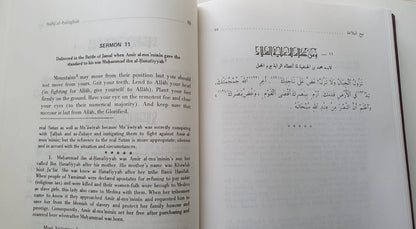 Nahj al-Balāghah
SERMON 11
Delivered in the Battle of Jamal when Amīr al-mu'minīn gave the
standard to his son Muḥammad ibn al-Ḥanafiyyah
Mountains¹ may move from their position but you should
not move from yours. Grit your teeth. Lend to Allāh your head
(in fighting for Allāh, give yourself to Allāh). Plant your feet
firmly on the ground. Have your eye on the remotest foe and close
your eyes (to their numerical majority). And keep sure that
succour is but from Allāh, the Glorified.
real Satan as well as Mu'āwiyah because Mu'āwiyah was secretly conspiring
with Ṭalḥah and az-Zubayr and instigating them to fight against Amīr al-
mu'minīn; but the reference to the real Satan is more appropriate, obvious
and in accord with the situation and circumstances.
* * * * *
1. Muḥammad ibn al-Ḥanafiyyah was Amīr al-mu'minīn's son but
called Ibn Ḥanafiyyah after his mother. His mother's name was Khawlah
bint Ja'far. She was known as Ḥanafiyyah after her tribe Banū Ḥanīfah.
When people of Yamāmah were declared apostates for refusing to pay zakāt
(religious tax) and were killed and their women-folk were brought to Medina
as slave girls, this lady also came to Medina with them. When her tribesmen
came to know it they approached Amīr al-mu'minīn and requested him to
save her from the blemish of slavery and protect her family honour and
prestige. Consequently, Amīr al-mu'minīn set her free after purchasing and
married her whereafter Muḥammad was born.
نهج البلاغة
١١ — ومن كلام له عليه السلام
لابنه محمد بن الحنفية لما أعطاه الراية يوم الجمل
تَزُولُ الْجِبَالُ وَلَا تَزُلْ! عَضَّ عَلَى نَاجِذِكَ. أَعِرِ اللهَ جُمْجُمَتَكَ.
تِدْ فِي الْأَرْضِ قَدَمَكَ. ارْمِ بِبَصَرِكَ أَقْصَى الْقَوْمِ، وَغُضَّ بَصَرَكَ،
وَاعْلَمْ أَنَّ النَّصْرَ مِنْ عِنْدِ اللهِ سُبْحَانَهُ
* * * * *